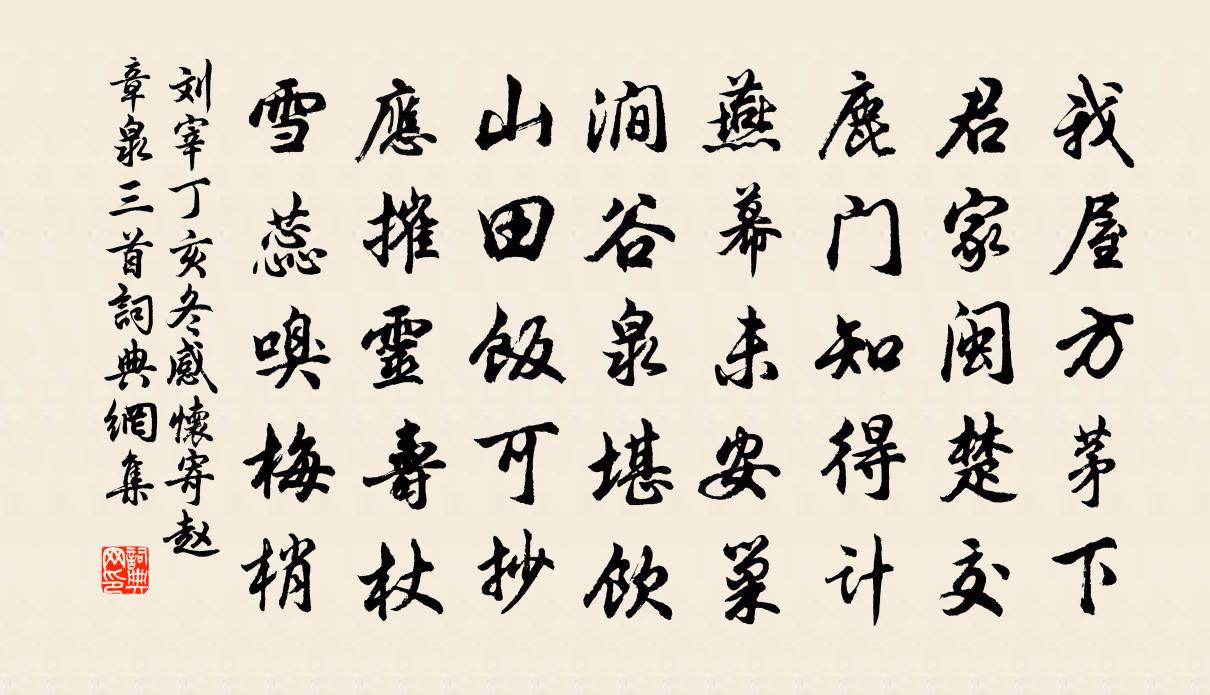 我屋方茅下
君家闽楚交
鹿门知得计
燕幕未安巢
涧谷泉堪饮
山田饭可抄
應摧靈壽杖
雪蕊嗅梅梢
刘宰丁亥冬感懷寄赵
章泉三首詞典網集
詞典
网印